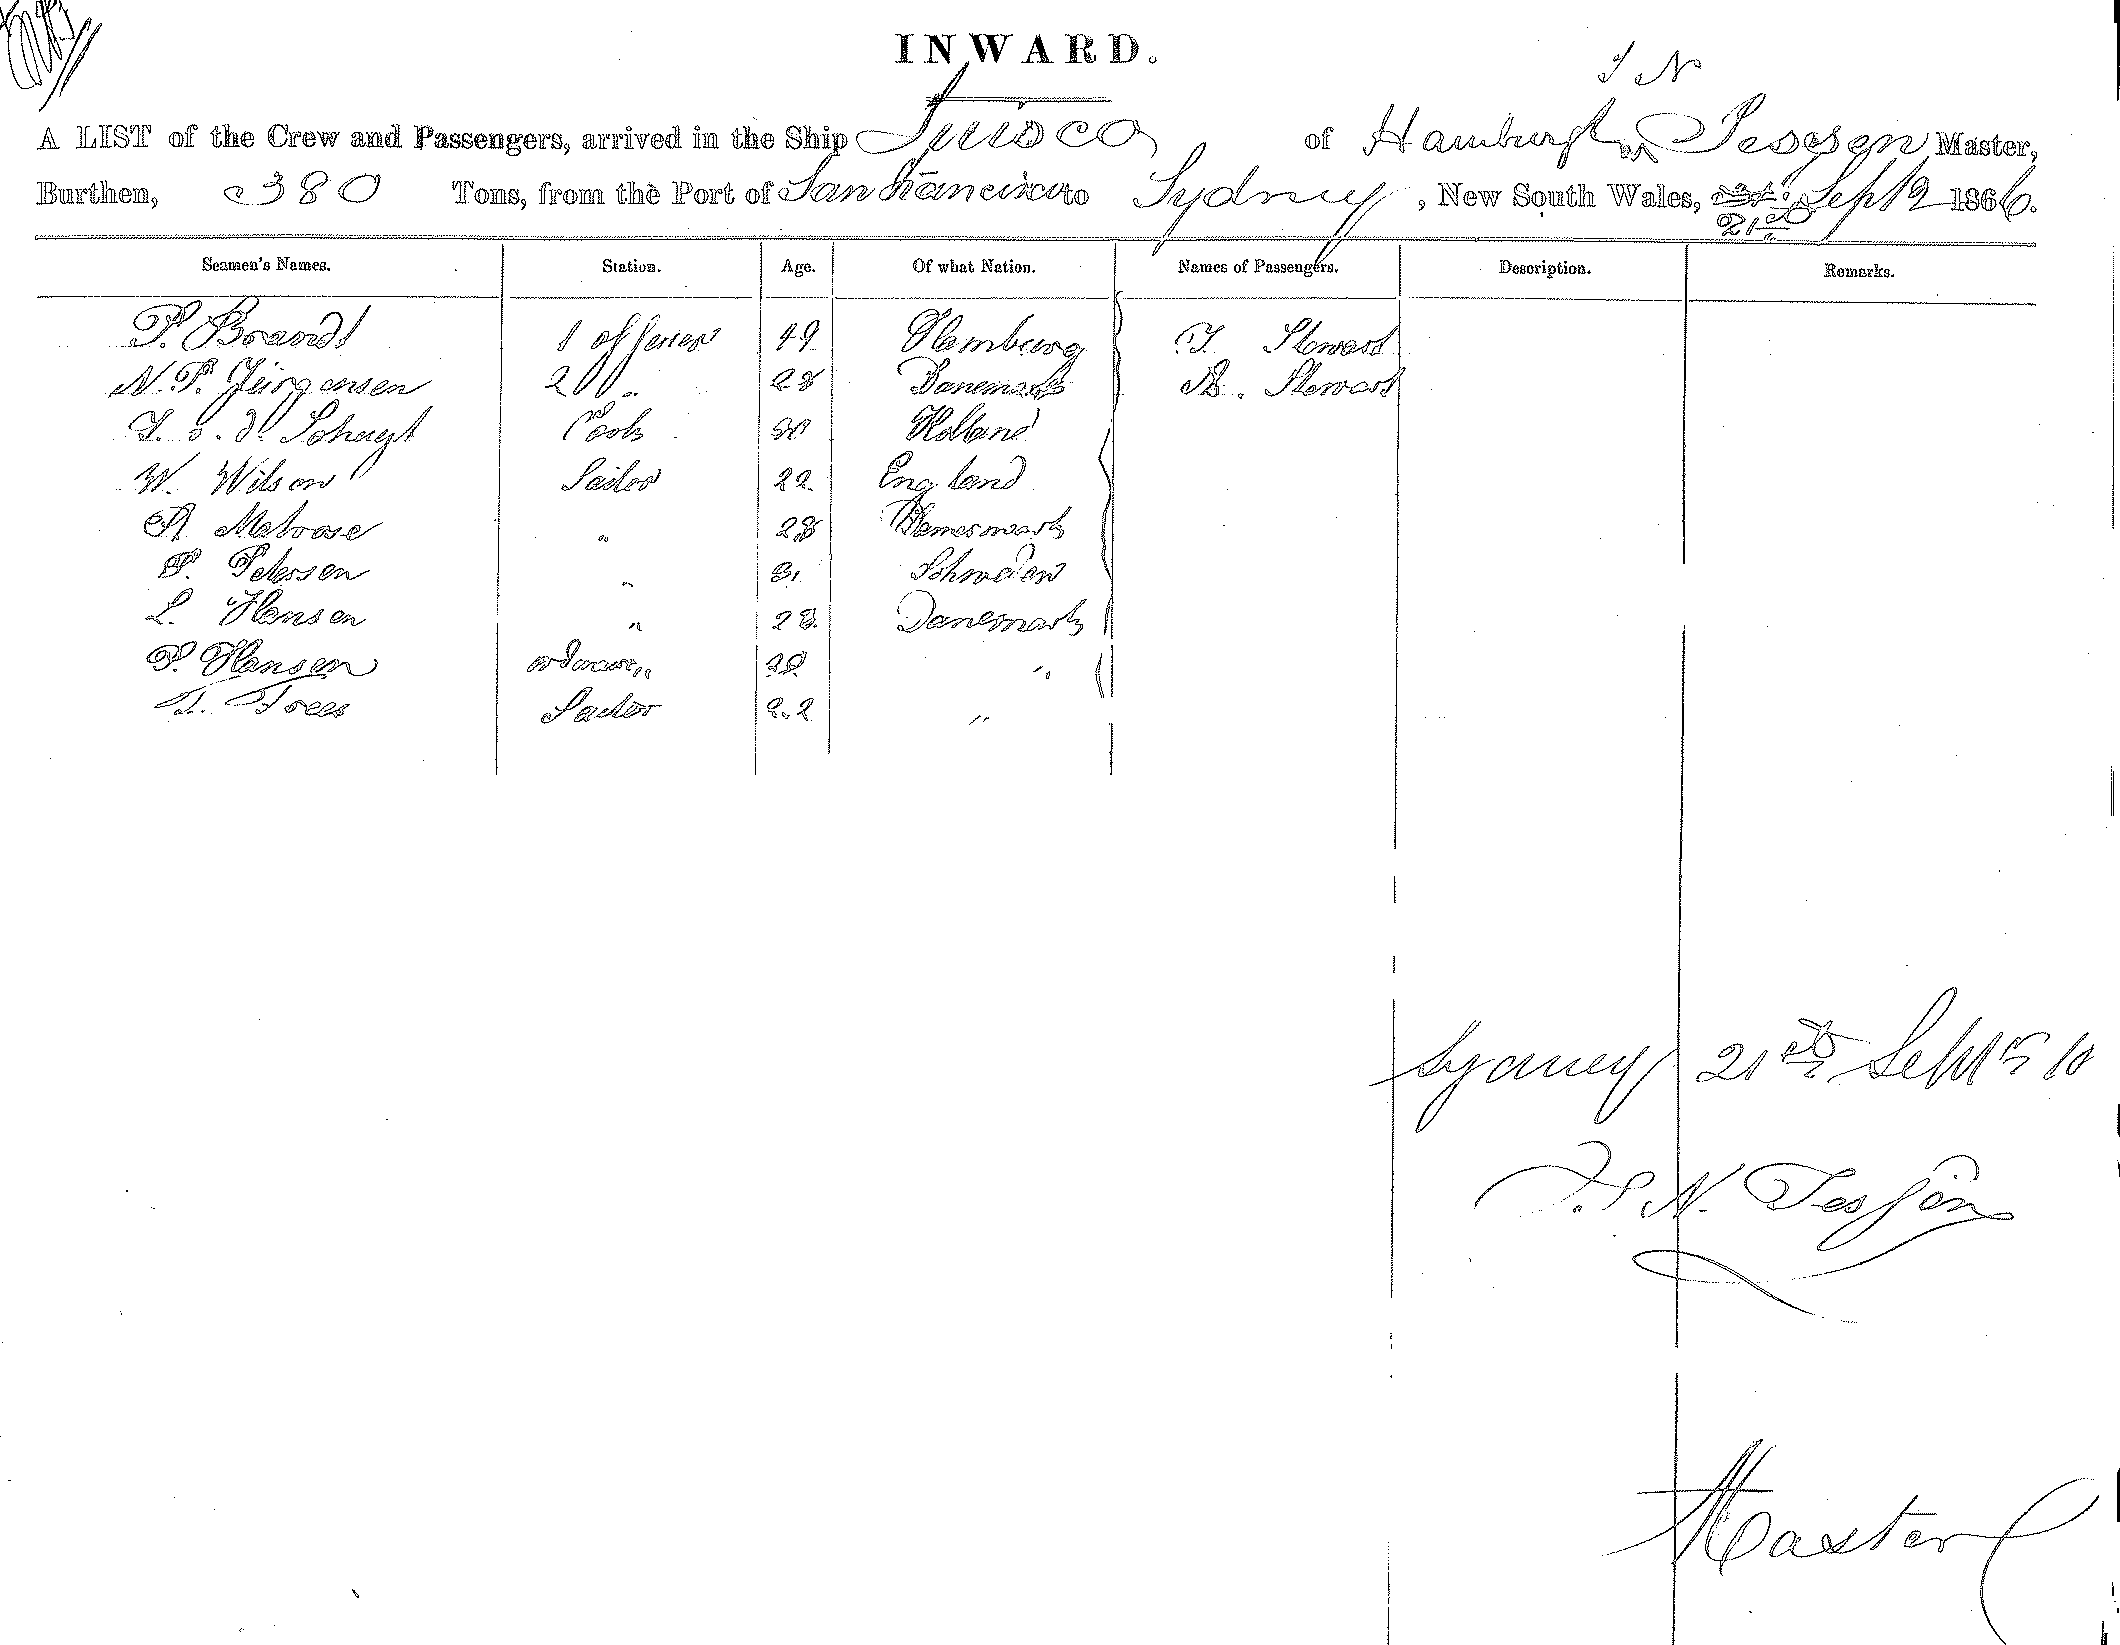 INWARD.
J N
A LIST of the Crew and Passengers, arrived in the Ship of Hamburgh Master,
Burthen, 380 Tons, from the Port of San Francisco to Sydney, New South Wales, 21st Sept 1866.
Seamen's Names. Station. Age. Of what Nation. Names of Passengers. Description. Remarks.
P. Brandt 1 officer 49 Hamburg J. Stewart
N. P. Jürgensen 2 " 28 Danemark A. Stewart
Cook Holland
W. Wilson Sailor 22 England
A Melrose " 28
P. Petersen " 31 Schweden
L. Hansen " 23 Danemark
P. Hansen 20 "
J. Frees Sailor 22 "
Sydney 21st Sept
N.
Master